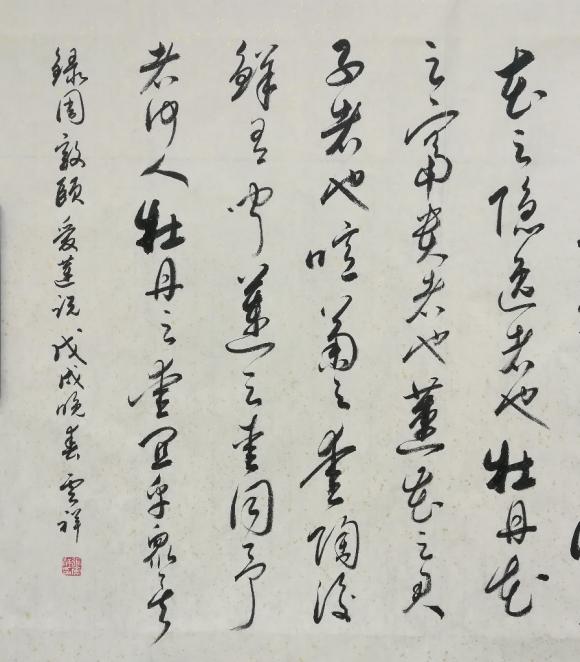 花之隱逸者也牡丹花
之富貴者也蓮花之君
子者也噫菊之愛陶後
鮮有聞蓮之愛同予
者何人牡丹之愛宜乎眾矣
錄周敦頤愛蓮說戊戌晚春雲祥